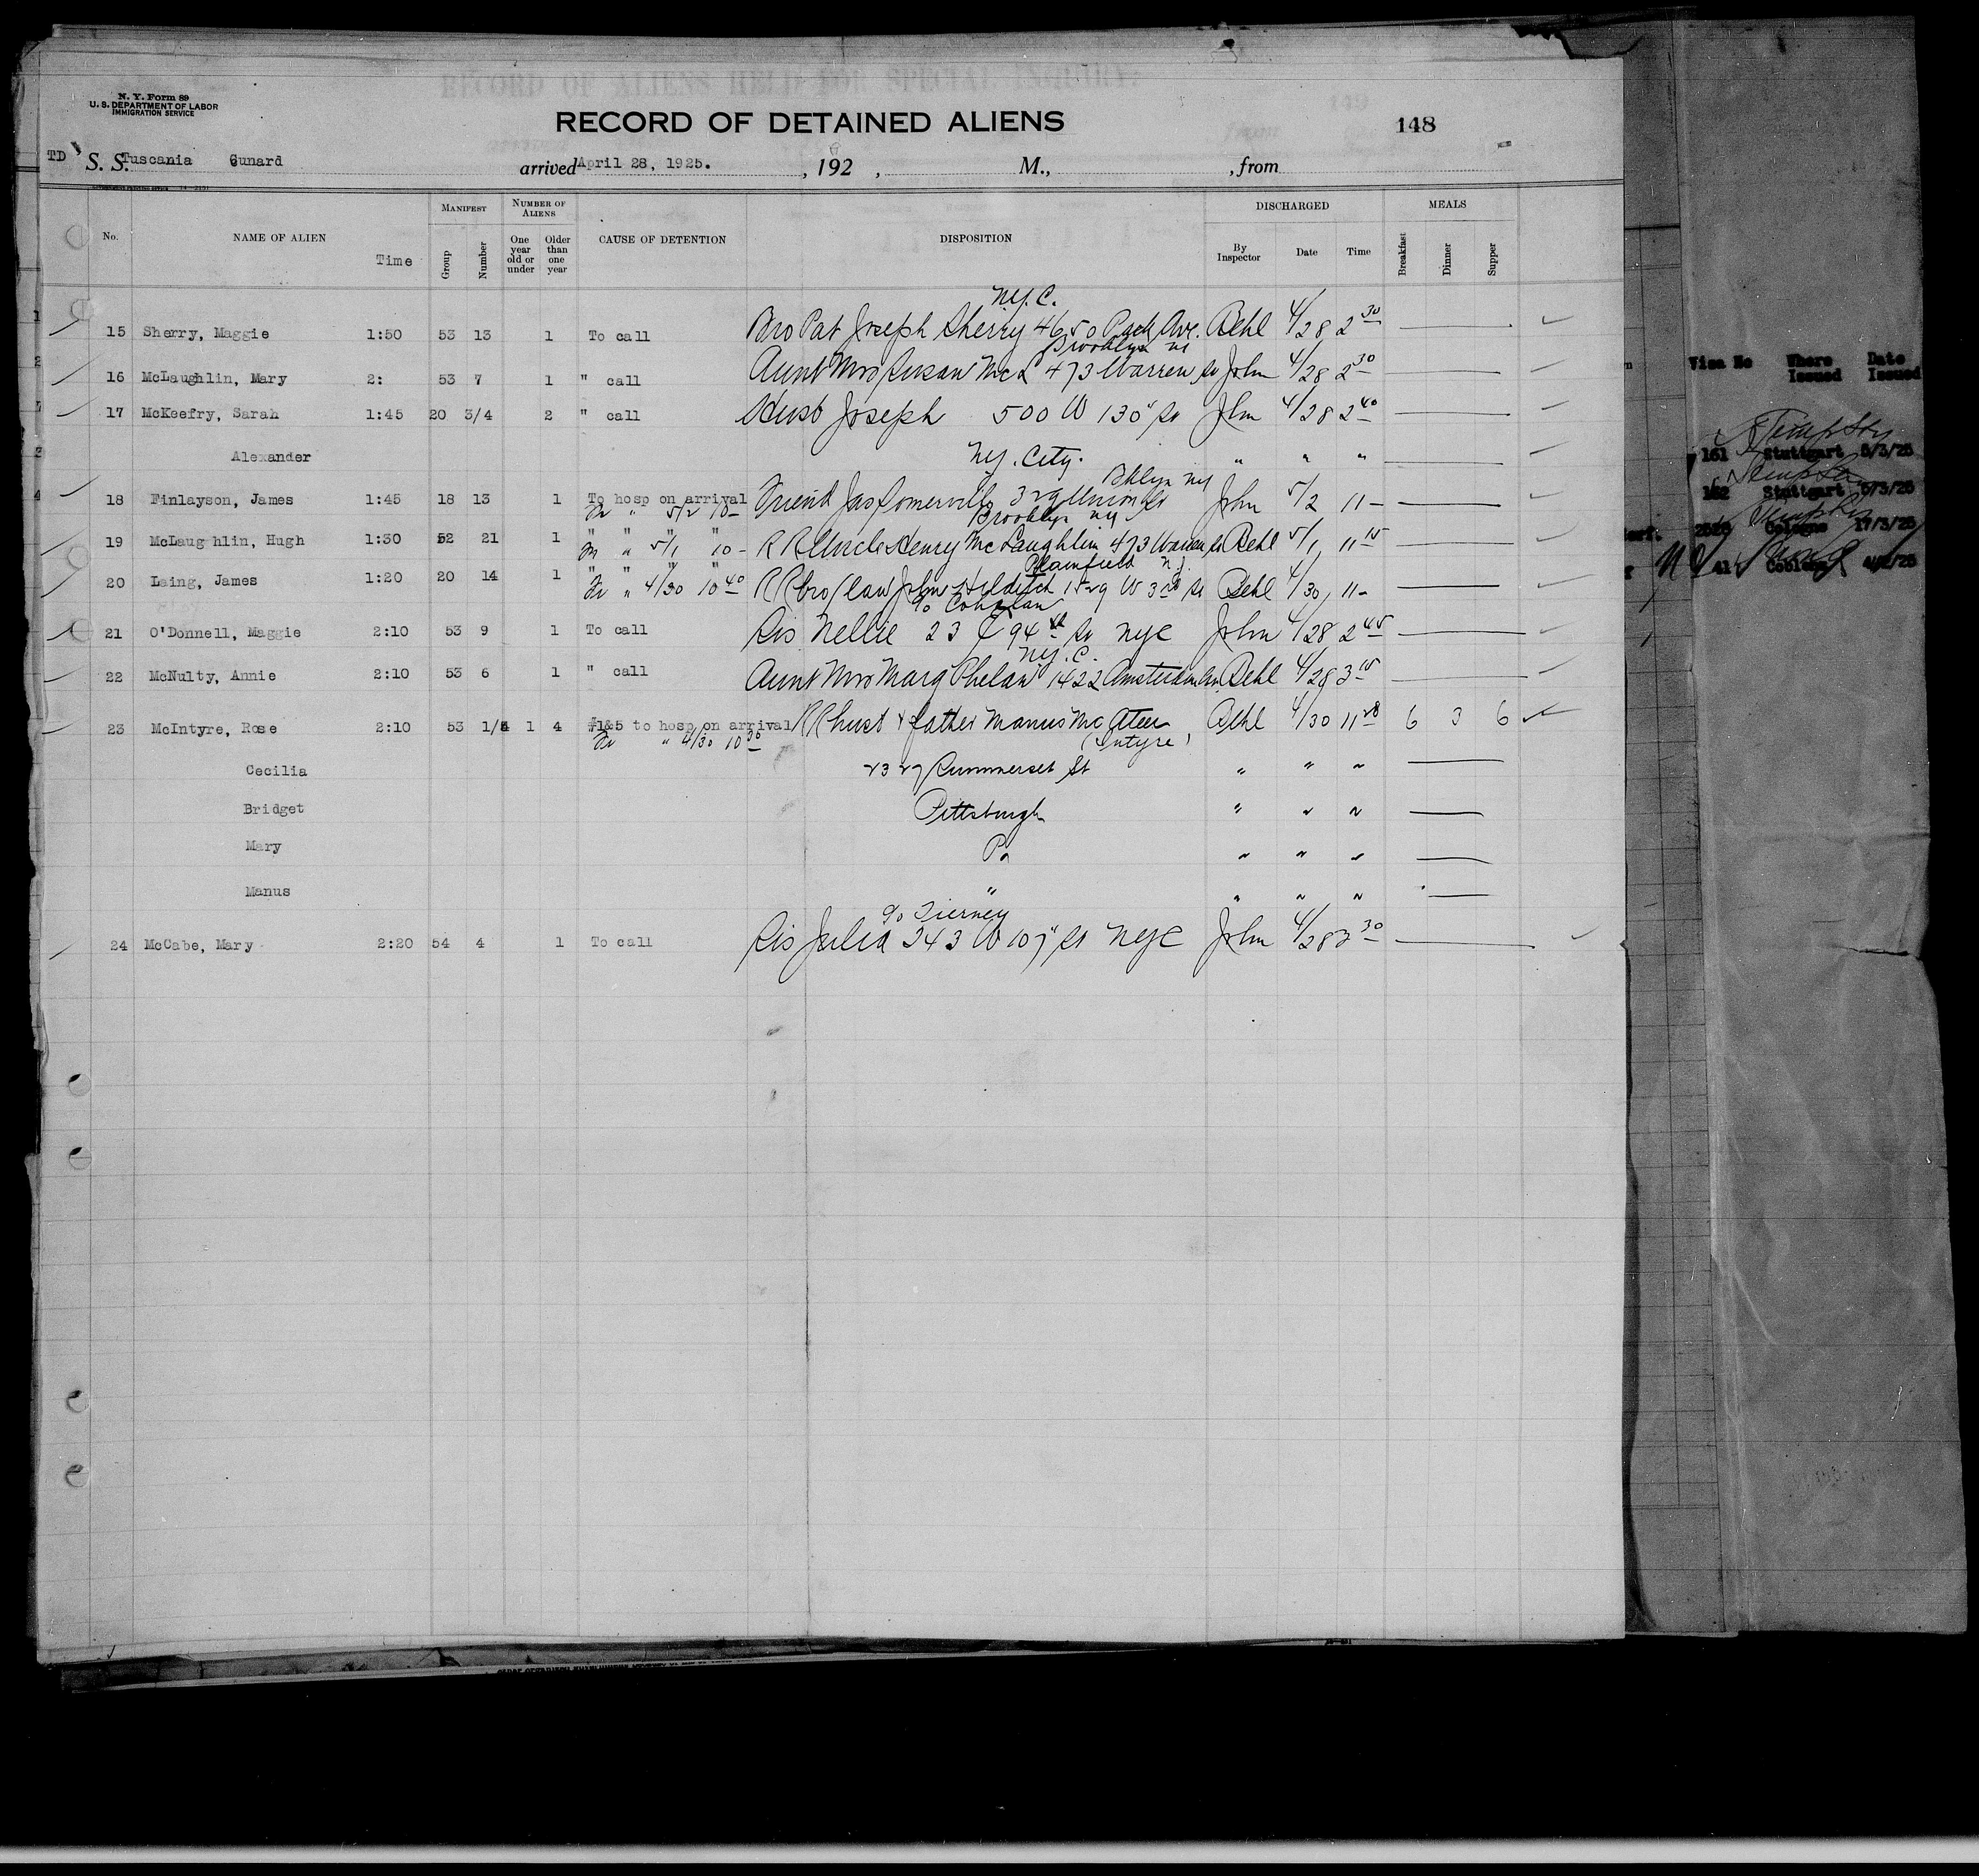 N. Y. Form 89
U. S. DEPARTMENT OF LABOR
IMMIGRATION SERVICE
RECORD OF DETAINED ALIENS
148
TD S. S. Tuscania Cunard arrived April 28, 1925. , 192 , M., , from
MANIFEST NUMBER OF ALIENS DISCHARGED MEALS
No. NAME OF ALIEN Time Group Number One year old or under Older than one year CAUSE OF DETENTION DISPOSITION By Inspector Date Time Breakfast Dinner Supper
N.Y.C.
15 Sherry, Maggie 1:50 53 13 1 To call Bro Pat Joseph Sherry 4650 Park Ave. Behl 4/28 2 30
Brooklyn NY
16 McLaughlin, Mary 2: 53 7 1 " call Aunt Mrs Susan McL 473 Warren St John 4/28 2 30
17 McKeefry, Sarah 1:45 20 3/4 2 " call Husb Joseph 500 W 130" St John 4/28 2 40
Alexander N.Y. City. " " "
Bklyn NY
18 Finlayson, James 1:45 18 13 1 To hosp on arrival Friend Jas Somerville 329 Union St John 5/2 11-
Fr " 5/2 10-
Brooklyn NY
19 McLaughlin, Hugh 1:30 52 21 1 " " " " RR Uncle Henry McLaughlin 473 Warren St Behl 5/1 11 15
Fr " 5/1 10-
Plainfield N.J.
20 Laing, James 1:20 20 14 1 " " " " RR bro/law John Hilditch 1529 W 3rd St Behl 4/30 11-
Fr " 4/30 10 40
21 O'Donnell, Maggie 2:10 53 9 1 To call Sis Nellie 23 E 94th St NYC John 4/28 2 45
N.Y.C.
22 McNulty, Annie 2:10 53 6 1 " call Aunt Mrs Marg Phelan 1422 Amsterdam Av. Behl 4/28 3 15
23 McIntyre, Rose 2:10 53 1/5 1 4 #1&5 to hosp on arrival RR husb & father Manus McAteer Behl 4/30 11 28 6 3 6
Fr " 4/30 10 30 (Intyre)
Cecilia 2329 Summerset St " " "
Bridget Pittsburgh " " "
Mary Pa " " "
Manus " " " "
c/o Tierney
24 McCabe, Mary 2:20 54 4 1 To call Sis Julia 243 W 107" St NYC John 4/28 2 30
Visa No Where Issued Date Issued
161 Stuttgart 5/3/25
162 Stuttgart 5/3/25
Cologne 17/3/25
41 Coblenz